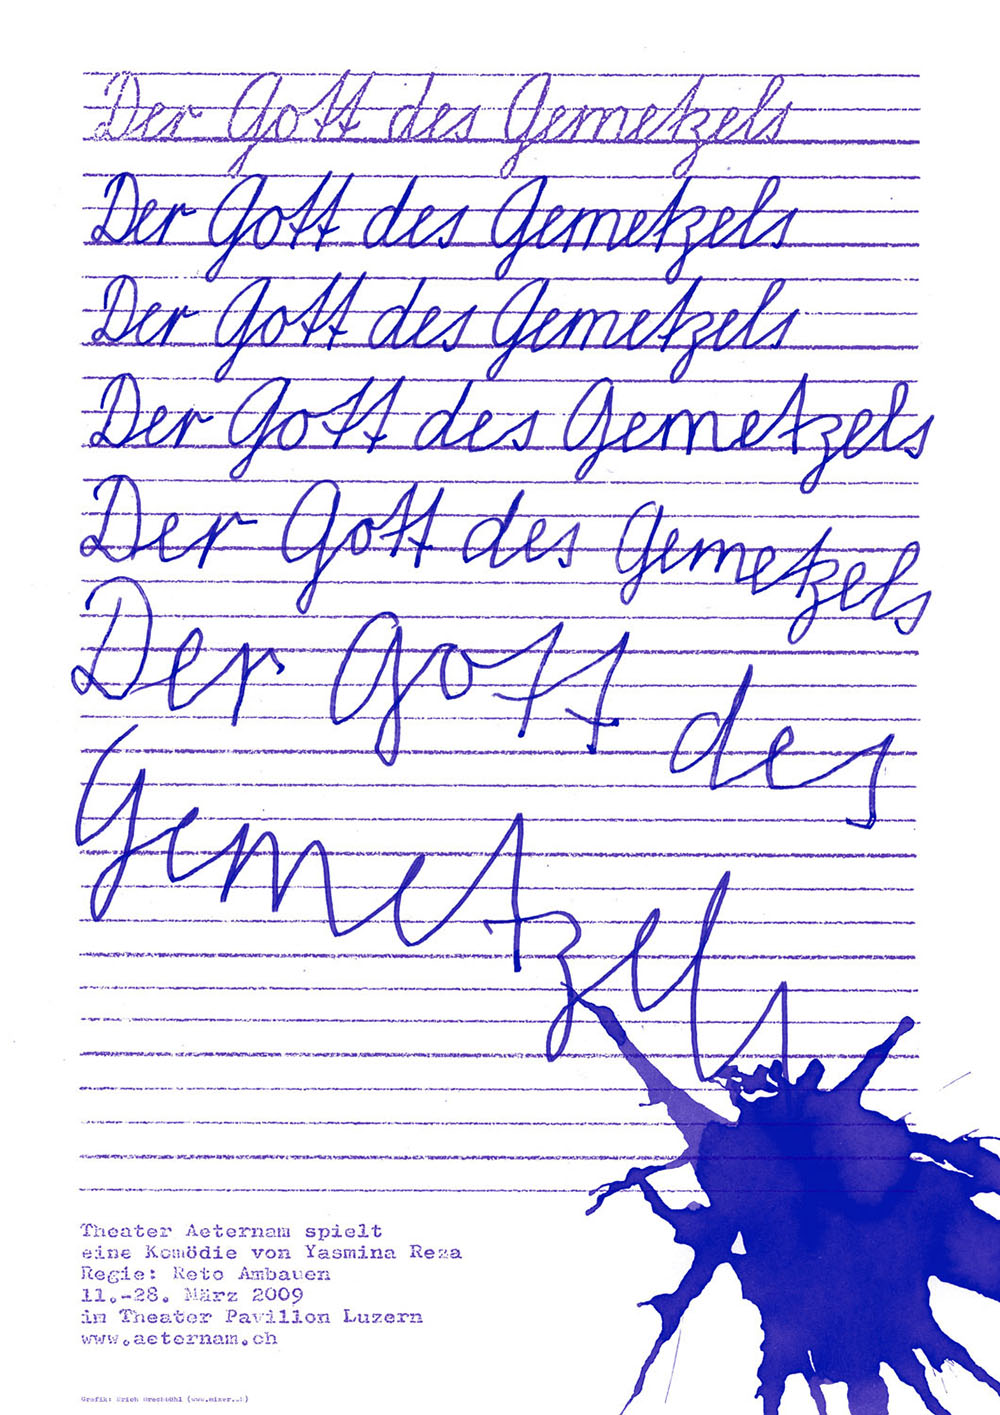 Der Gott des Gemetzels
Der Gott des Gemetzels
Der Gott des Gemetzels
Der Gott des Gemetzels
Der Gott des Gemetzels
Der Gott des
Gemetzels
Theater Aeternam spielt
eine Komödie von Yasmina Reza
Regie: Reto Ambauen
11.-28. März 2009
im Theater Pavillon Luzern
www.aeternam.ch
Grafik: Erich